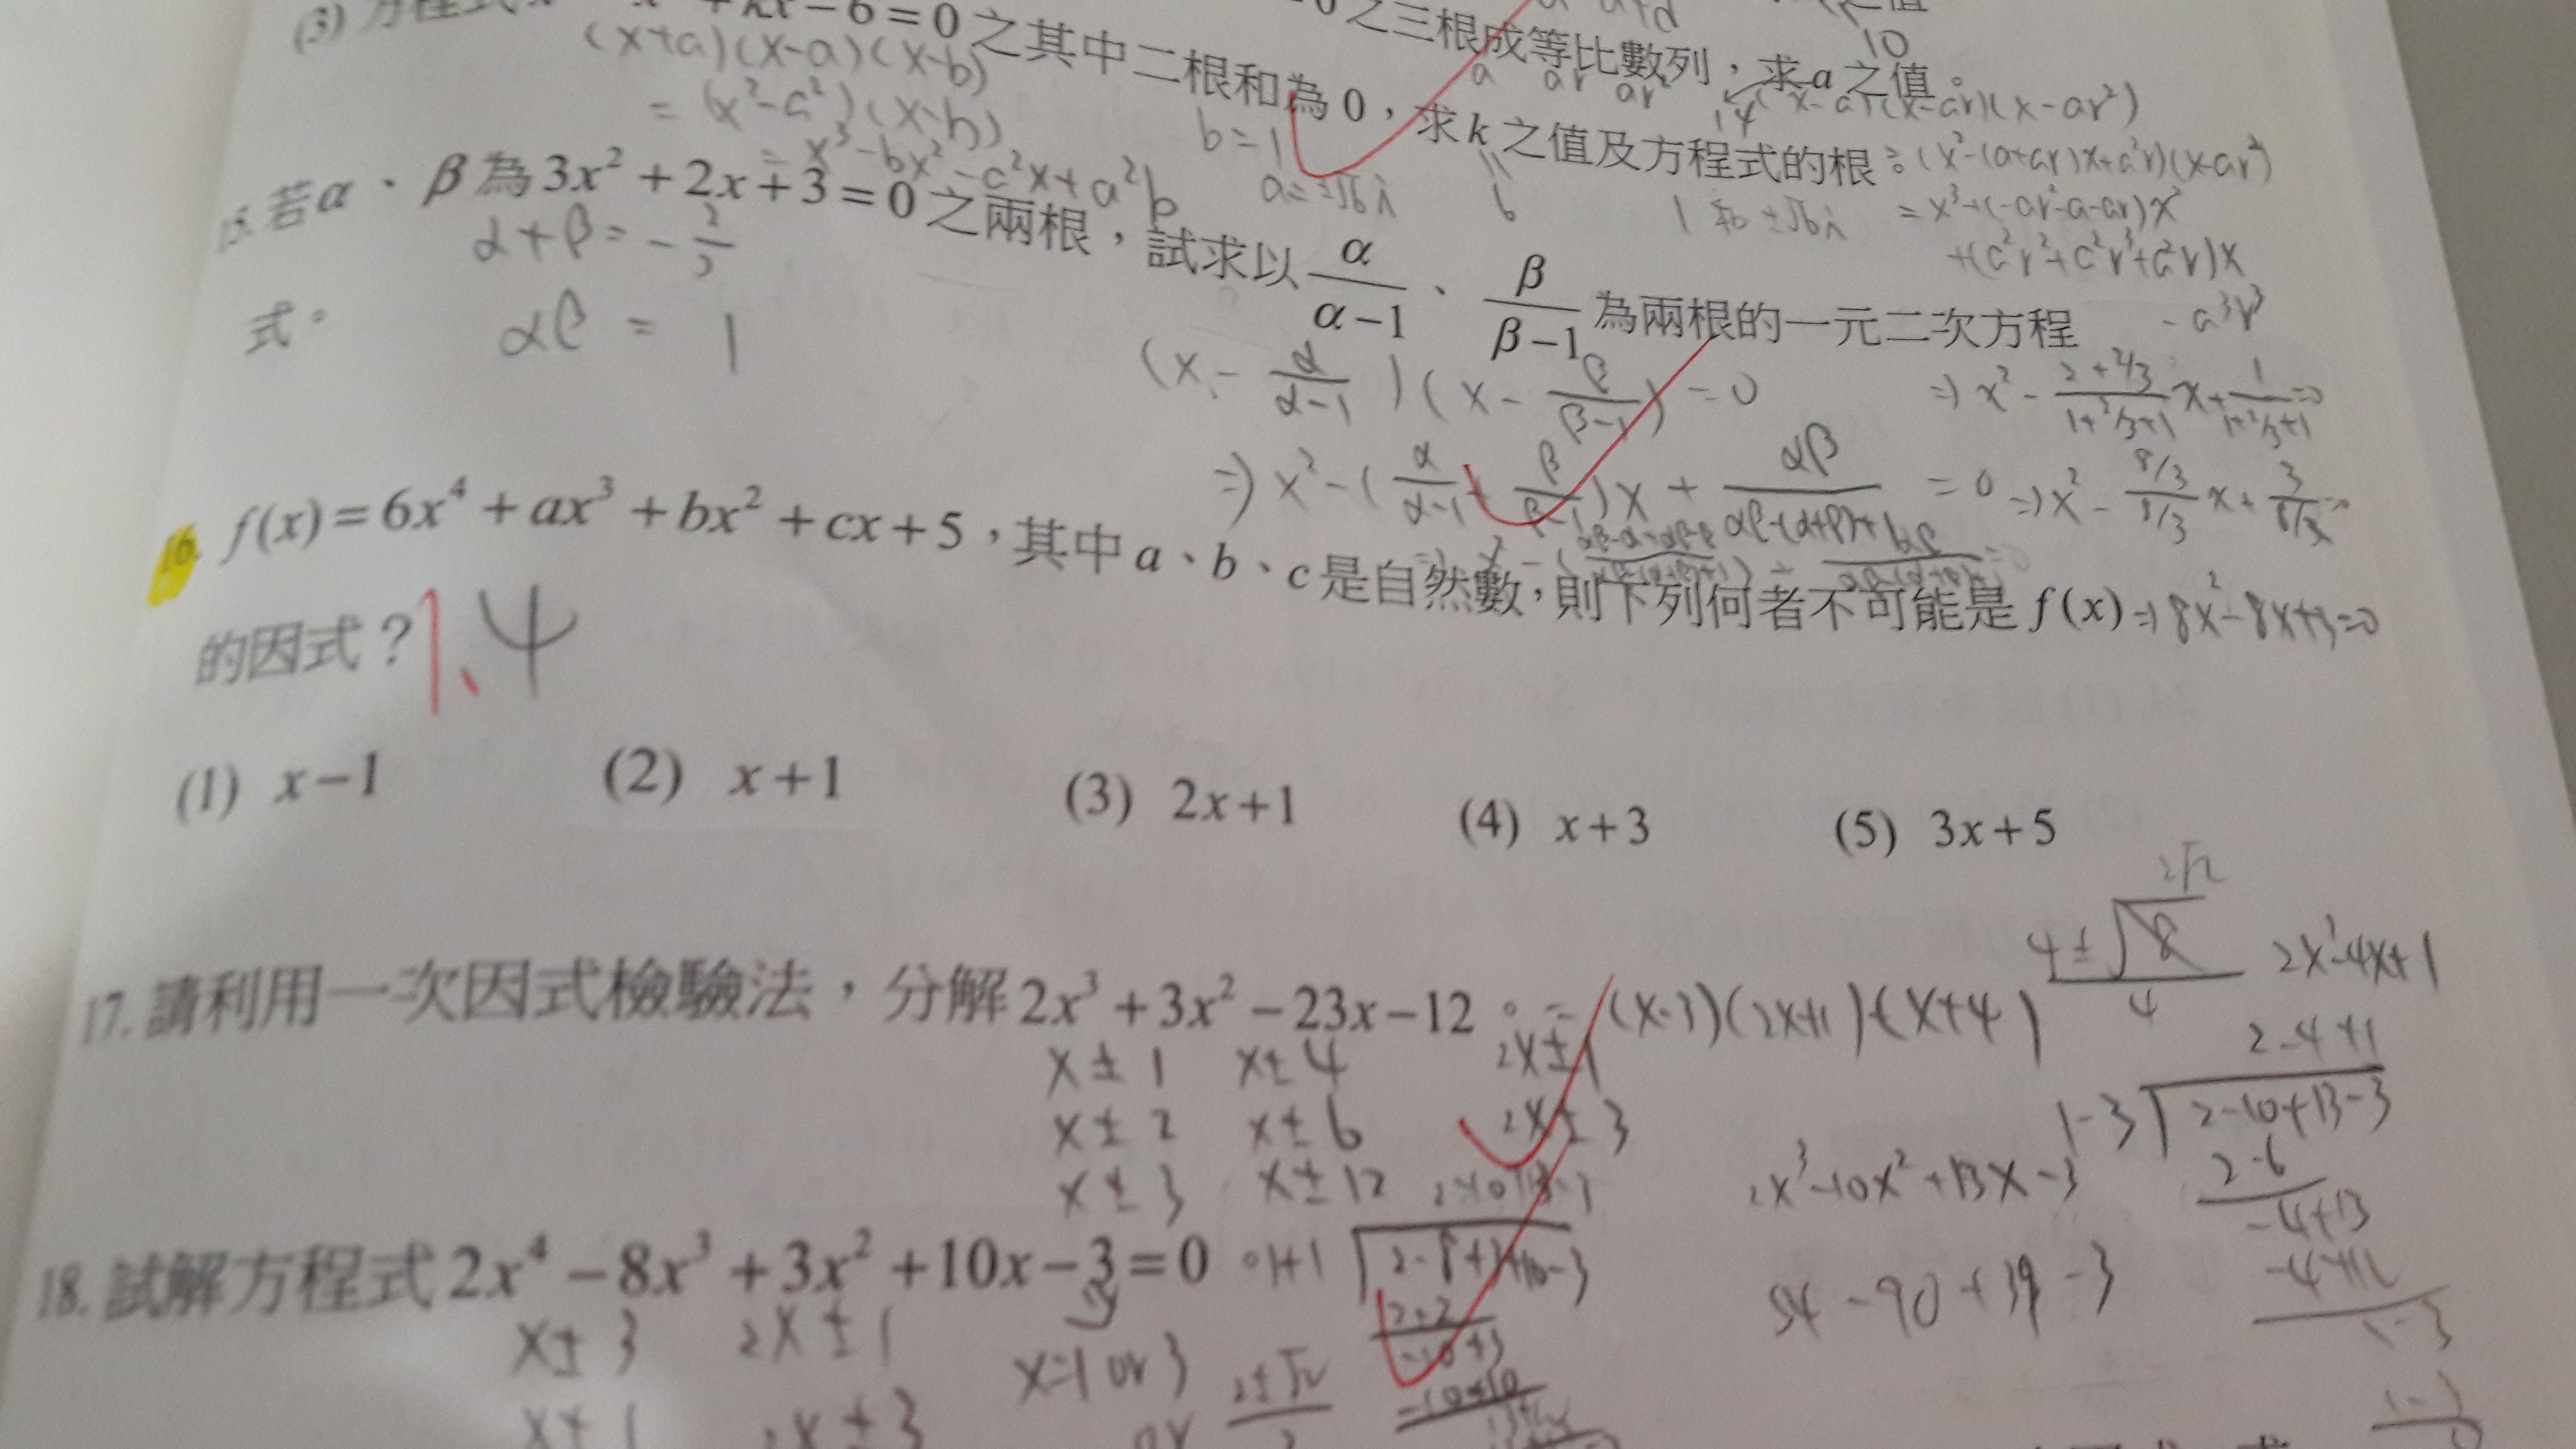 (3) 方程式 -6=0之其中二根和為0，求k之值及方程式的根。
0之三根成等比數列，求a之值。
a ar ar²
10
14
(x+a)(x-a)(x-b)
=(x²-a²)(x-b)
=x³-bx²-a²x+a²b
b=1
a=±√6i
6
1和±√6i
(x-a)(x-ar)(x-ar²)
=(x²-(a+ar)x+a²r)(x-ar²)
=x³+(-ar²-a-ar)x²
+(a²r²+a²r³+a²r)x
-a³r³
15. 若α、β為3x²+2x+3=0之兩根，試求以α/(α-1)、β/(β-1)為兩根的一元二次方程
式。
α+β=-2/3
αβ=1
(x-α/(α-1))(x-β/(β-1))=0
⇒x²-(α/(α-1)+β/(β-1))x+αβ/(αβ-(α+β)+1)=0
⇒x²-(2+2/3)/(1+2/3+1)x+1/(1+2/3+1)=0
⇒x²-(8/3)/(8/3)x+3/(8/3)=0
⇒8x²-8x+3=0
16. f(x)=6x⁴+ax³+bx²+cx+5，其中a、b、c是自然數，則下列何者不可能是f(x)
的因式？1.4
(1) x-1 (2) x+1 (3) 2x+1 (4) x+3 (5) 3x+5
17. 請利用一次因式檢驗法，分解2x³+3x²-23x-12。=(x-3)(2x+1)(x+4)
x±1 x±4 2x±1
x±2 x±6 2x±3
x±3 x±12
2√2
(4±√8)/4
2x²-4x+1
2-4+1
1-3 2-10+13-3
2-6
-4+13
-4+12
1-3
2x³-10x²+13x-3
54-90+39-3
18. 試解方程式2x⁴-8x³+3x²+10x-3=0。
1+1 2-8+3+10-3
2+2
-10+3
-10-10
x±3 2x±1
x±1 2x±3
x=-1 or 3
or (2±√2)/2